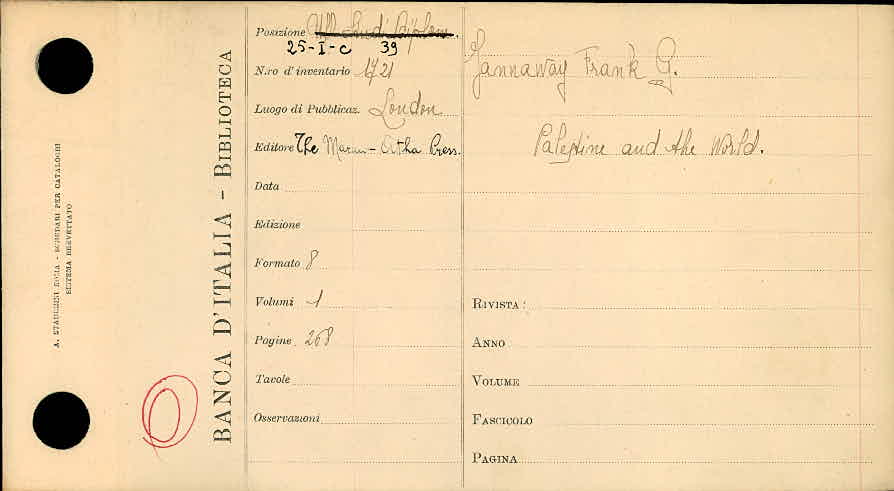 A. STADERINI ROMA - SCHEDARI PER CATALOGHI
SISTEMA BREVETTATO
BANCA D'ITALIA - BIBLIOTECA
Posizione Uff. Studi
25-I-C 39
N.ro d'inventario 1721
Luogo di Pubblicaz. London
Editore The Maran-Atha Press.
Data
Edizione
Formato 8
Volumi 1
Pagine 268
Tavole
Osservazioni
Jannaway Frank G.
Palestine and the World.
RIVISTA:
ANNO
VOLUME
FASCICOLO
PAGINA